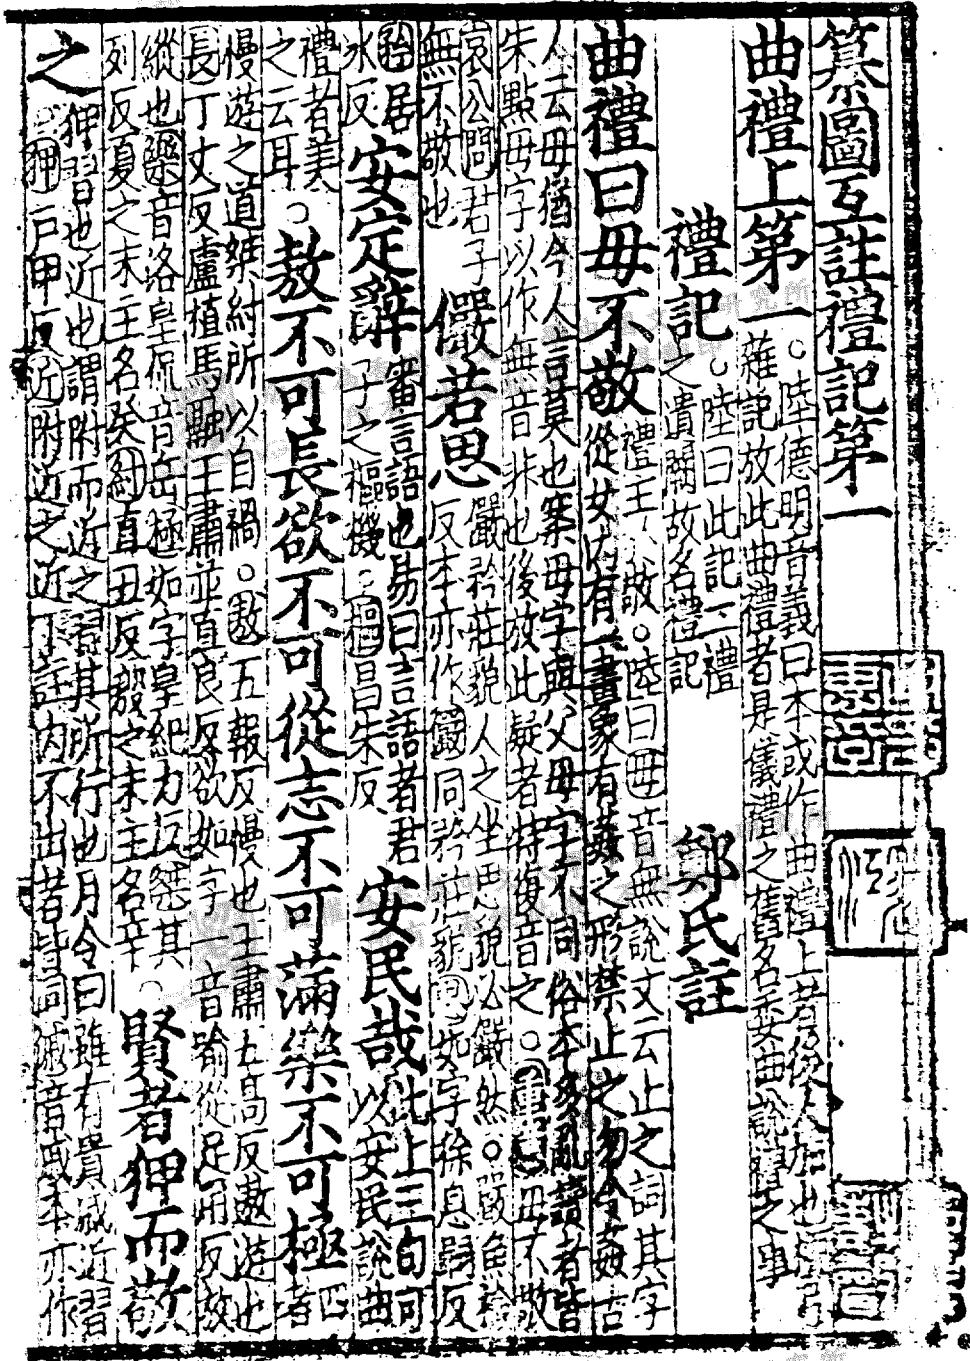 纂圖互註禮記第一
曲禮上第一○陸德明音義曰本或作曲禮上者後人加也檀弓
雜記放此曲禮者是儀禮之舊名委曲說禮之事
禮記○陸曰此記二禮
之遺闕故名禮記 鄭氏註
曲禮曰毋不敬禮主於敬○陸曰毋音無說文云止之詞其字
從女內有一畫象有姦之形禁止之勿令姦古
人云毋猶今人言莫也案毋字與父母字不同俗本多亂讀者皆
朱點毋字以作無音非也後放此疑者特復音之○重意毋不敬
哀公問君子
無不敬也 儼若思儼矜莊貌人之坐思貌必儼然○儼魚檢
反本亦作嚴同矜莊貌思如字徐息嗣反
安定辭審言語也易曰言語者君
子之樞機○樞昌朱反 安民哉此上三句可
以安民說曲
禮者美
之云耳○敖不可長欲不可從志不可滿樂不可極四者
慢遊之道桀紂所以自禍○敖五報反慢也王肅五高反遨遊也
長丁丈反盧植馬融王肅並直良反欲如字一音喻從足用反放
縱也樂音洛皇侃音岳極如字皇紀力反桀其
列反夏之末主名癸紂直丑反殷之末主名辛○賢者狎而敬
之狎習也近也謂附而近之習其所行也月令曰雖有貴戚近習
狎戶甲反近附近之近下註內不出者皆同慼音戚本亦作